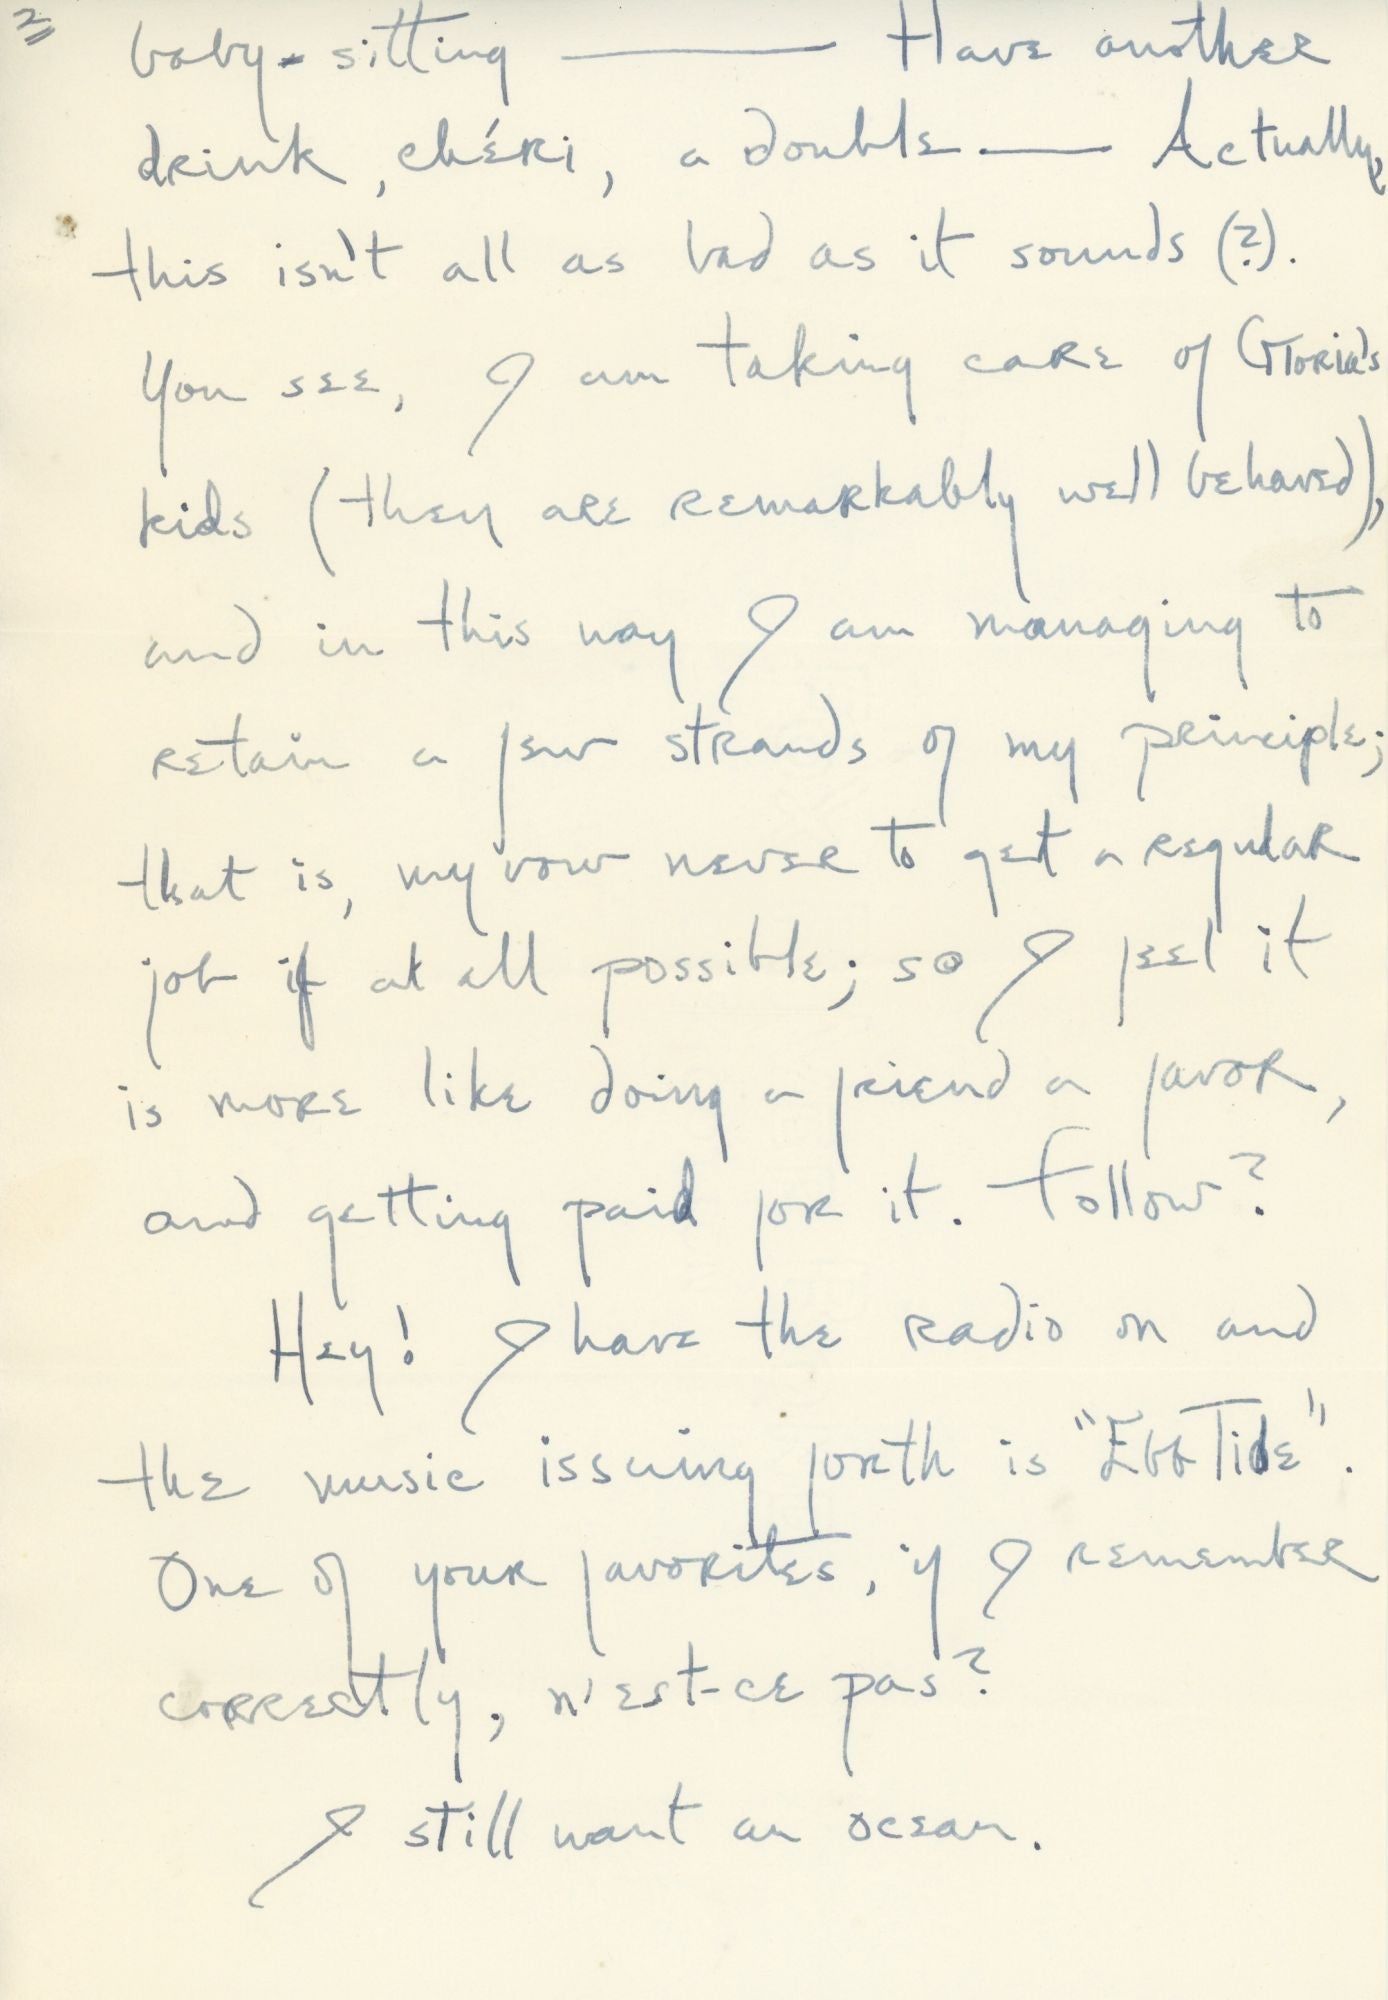 2
baby-sitting —— Have another
drink, chéri, a double. —— Actually,
this isn't all as bad as it sounds (?).
You see, I am taking care of Gloria's
kids (they are remarkably well behaved),
and in this way I am managing to
retain a few strands of my principle;
that is, my vow never to get a regular
job if at all possible; so I feel it
is more like doing a friend a favor,
and getting paid for it. Follow?
Hey! I have the radio on and
the music issuing forth is "Ebb Tide".
One of your favorites, if I remember
correctly, n'est-ce pas?
I still want an ocean.